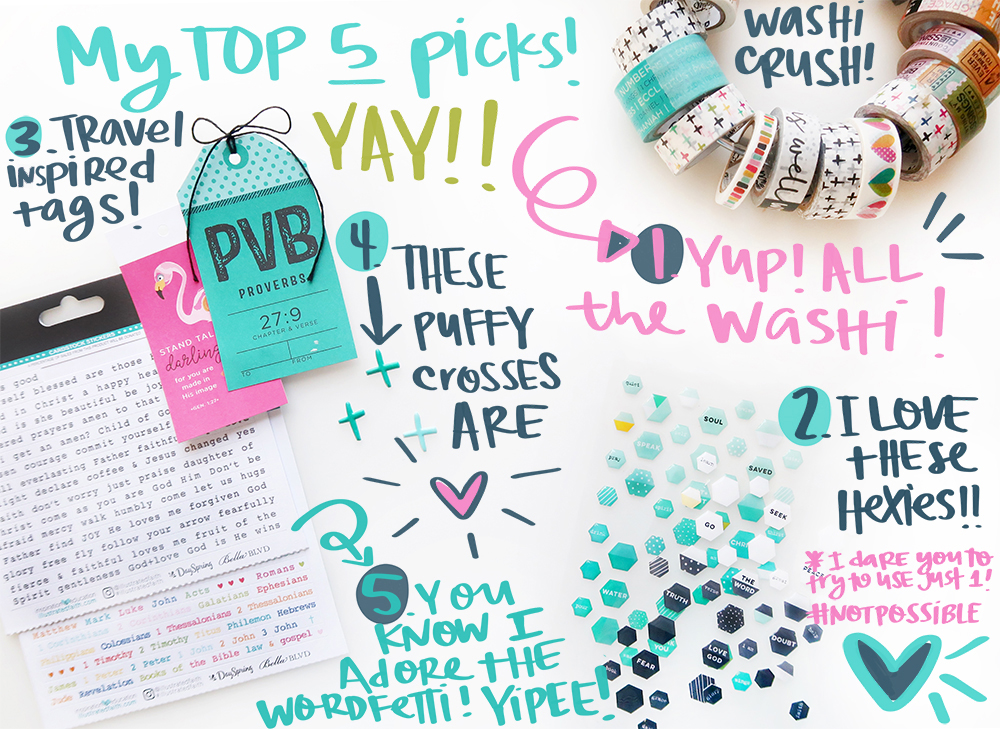 My TOP 5 picks!
YAY!!
WASHI
CRUSH!
3. TRAVEL
inspired
tags!
PVB
PROVERBS
27:9
CHAPTER & VERSE
TO
FROM
STAND TALL
darling
for you are
made in
His image
4. THESE
PUFFY
CROSSES
ARE
1. YUP! ALL
the WASHI!
2. I LOVE
THESE
HEXIES!!
* I dare you to
try to use just 1!
#NOTPOSSIBLE
5. YOU
KNOW I
ADORE THE
WORDFETTI! YIPEE!
CARDSTOCK STICKERS
s good
self blessed are those
d in Christ a happy hea
is she beautiful be joy
ered prayers amen to that
get an amen? Child of God
es courage commit yourself
ll everlasting Father faithful changed yes
ight declare coffee & Jesus praise daughter of
aith don't worry just God Him Don't be
hrist come as you are come let us hugs
fraid mercy walk humbly forgiven God
Father find JOY He loves me fearfully
glory free fly follow your arrow
fierce & faithful loves me fruit of the
Spirit gentleness God=love God is He wins
DaySpring Bella BLVD
illustratedfaith.com
Matthew Mark Luke John Acts Romans
Corinthians Galatians Ephesians
Philippians Colossians 1 Thessalonians 2 Thessalonians
1 Timothy 2 Timothy Titus Philemon Hebrews
James 1 Peter 2 Peter 1 John 2 John 3 John
Jude Revelation Books of the Bible law & gospel
DaySpring Bella BLVD
illustratedfaith.com
SOUL
SPEAK
SAVED
SEEK
GO
WATER
TRUTH
THE
WORD
YOU
FEAR
LOVE
GOD
DOUBT